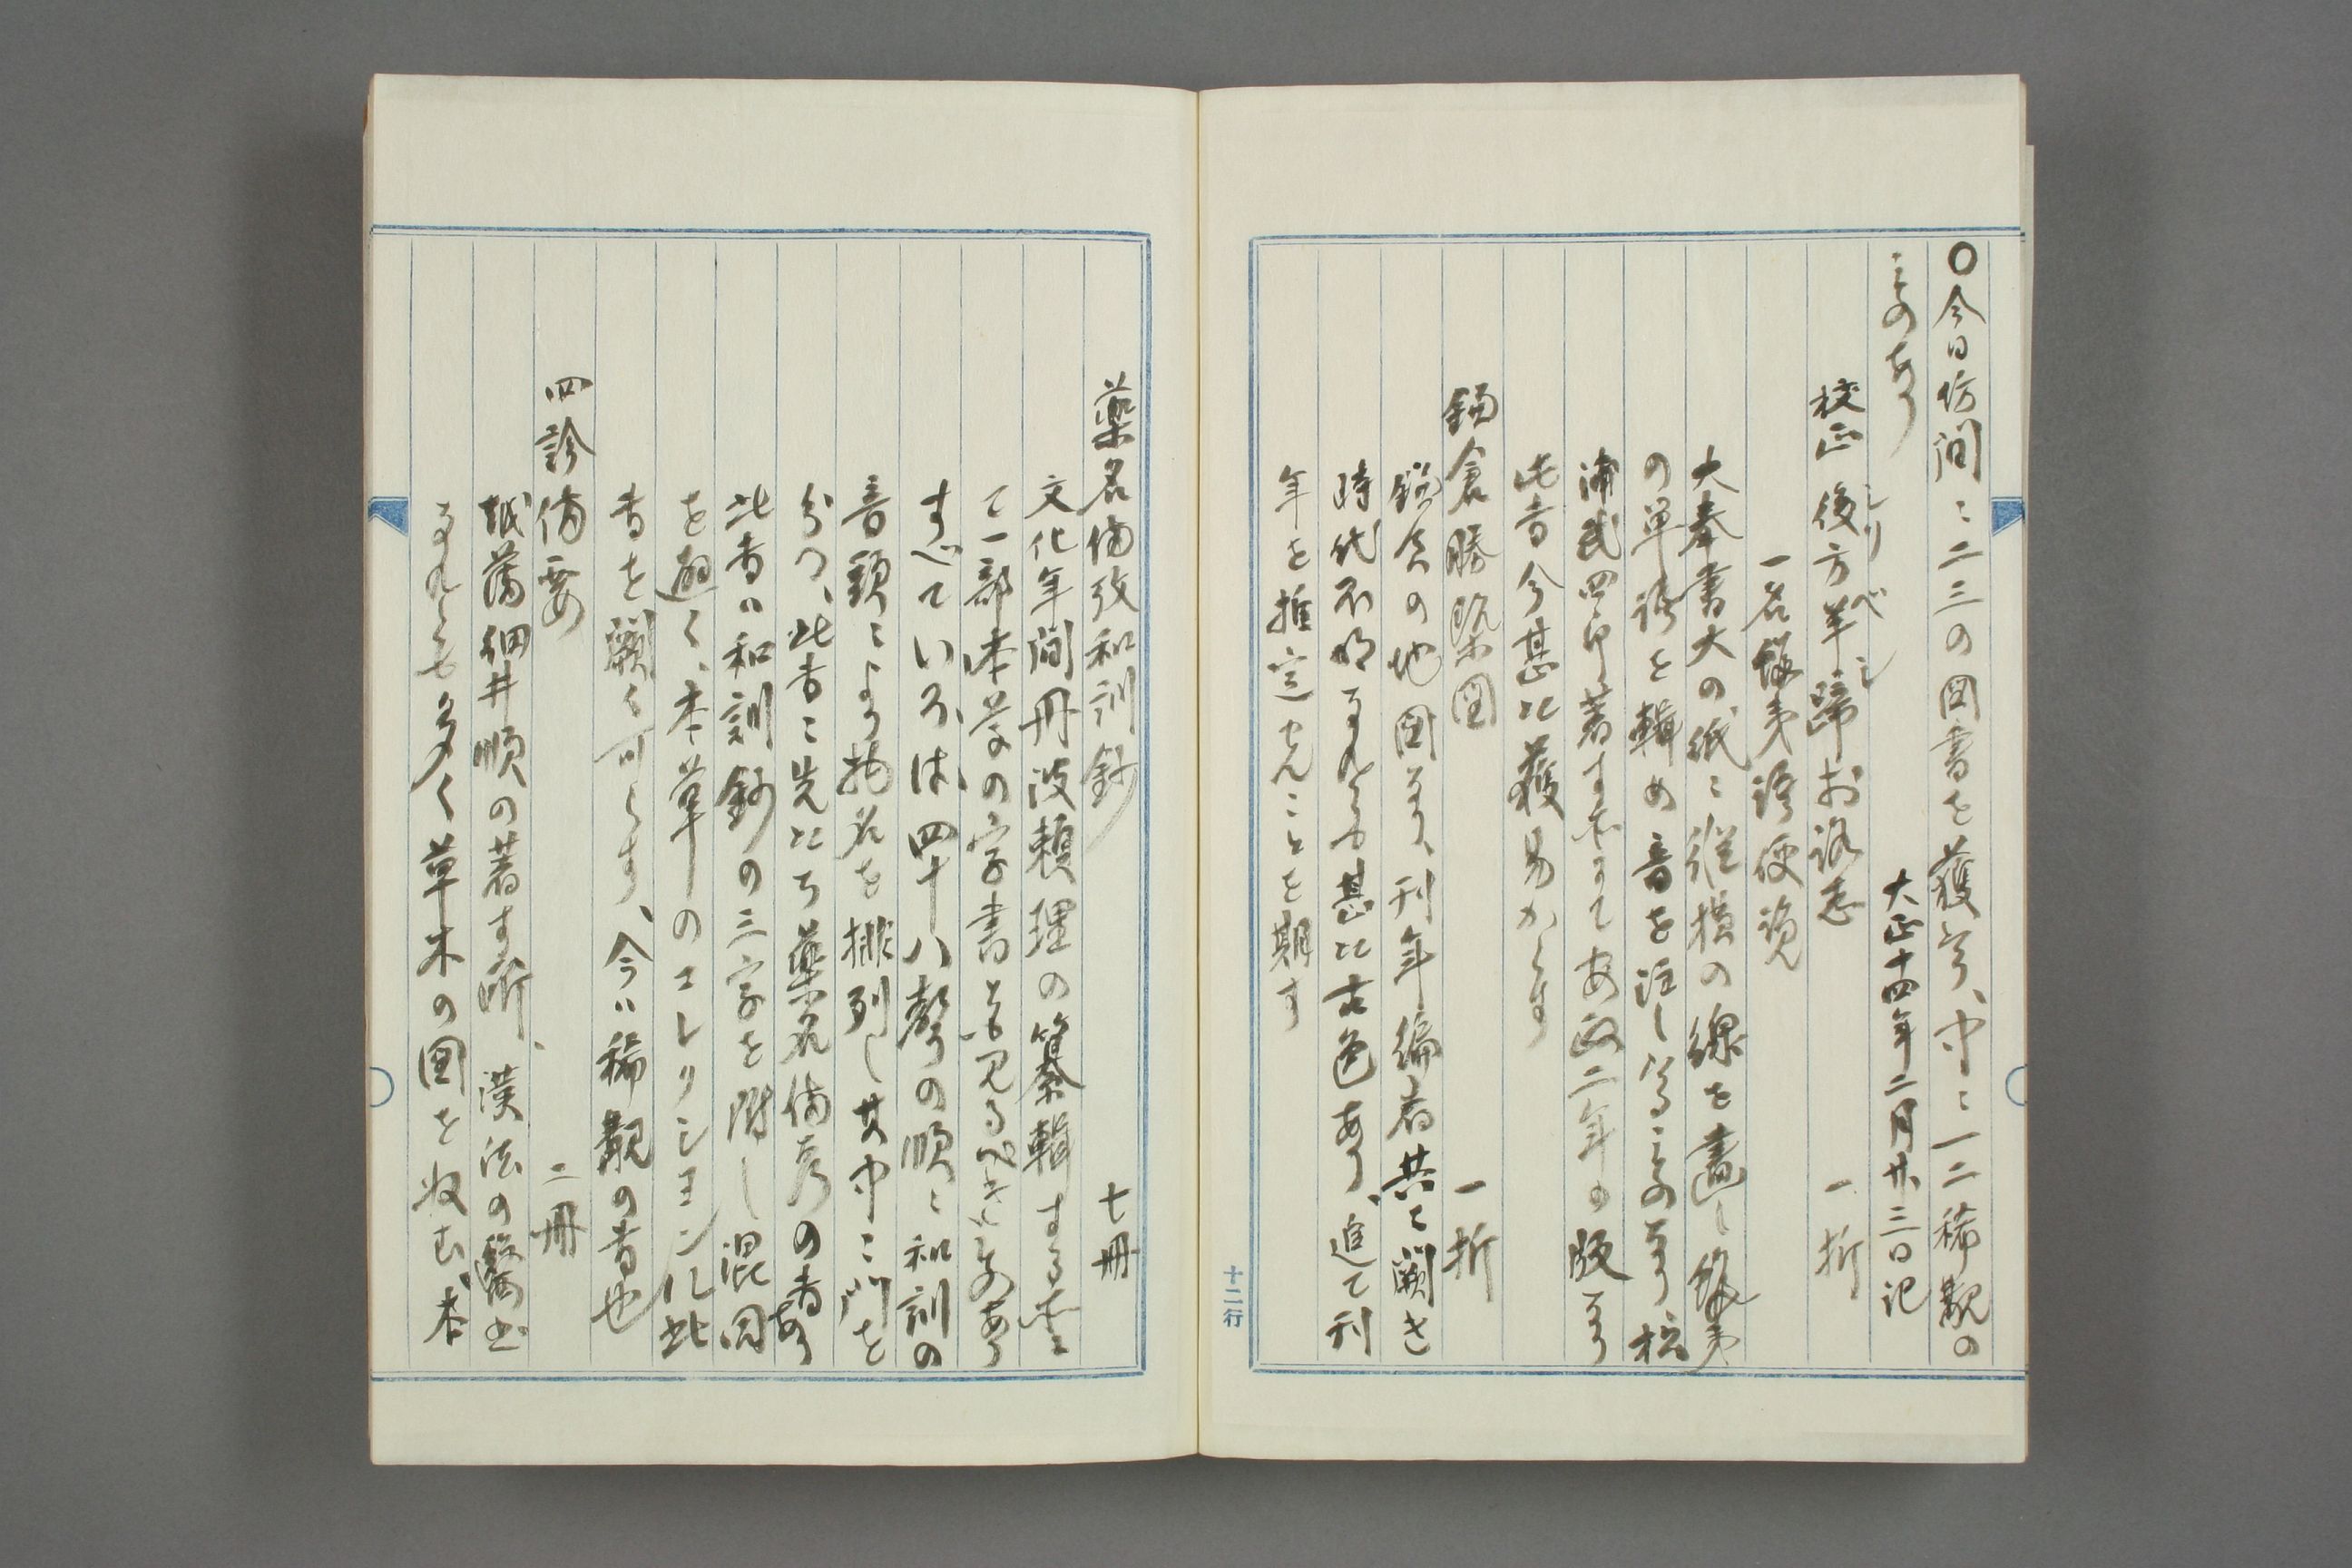 〇今日坊間ニ二三の図書を獲たり、中ニ一二稀覯の
ものあり
大正十四年二月廿三日記
校正 後方羊蹄於路志 一折
シリベシ
一名蝦夷語便覧
大奉書大の紙ニ縦横の線を畫し蝦夷
の単語を輯め音を注したるものなり松
浦武四郎著す所にて安政二年の版なり
此書今甚だ獲易からす
鎌倉勝槩図 一折
鎌倉の地図なり、刊年編者共ニ闕き
時代不明なれども甚だ古色あり、追て刊
年を推定せんことを期す
十二行
薬名備考和訓鈔 七冊
文化年間丹波頼理の纂輯する書に
て一部本草の字書とも見るべきものあり
すべていろは四十八聲の順ニ和訓の
音頭により物名を排列し其中ニ門を
分つ、此書ニ先だち薬名備考の書あり
此書ハ和訓鈔の三字を附し混同
を避く、本草のコレクションに此
書を闕く可らす、今ハ稀覯の書也
四診備要 二冊
越藩細井順の著す所、漢法の醫書
なれども多く草木の図を収む、本